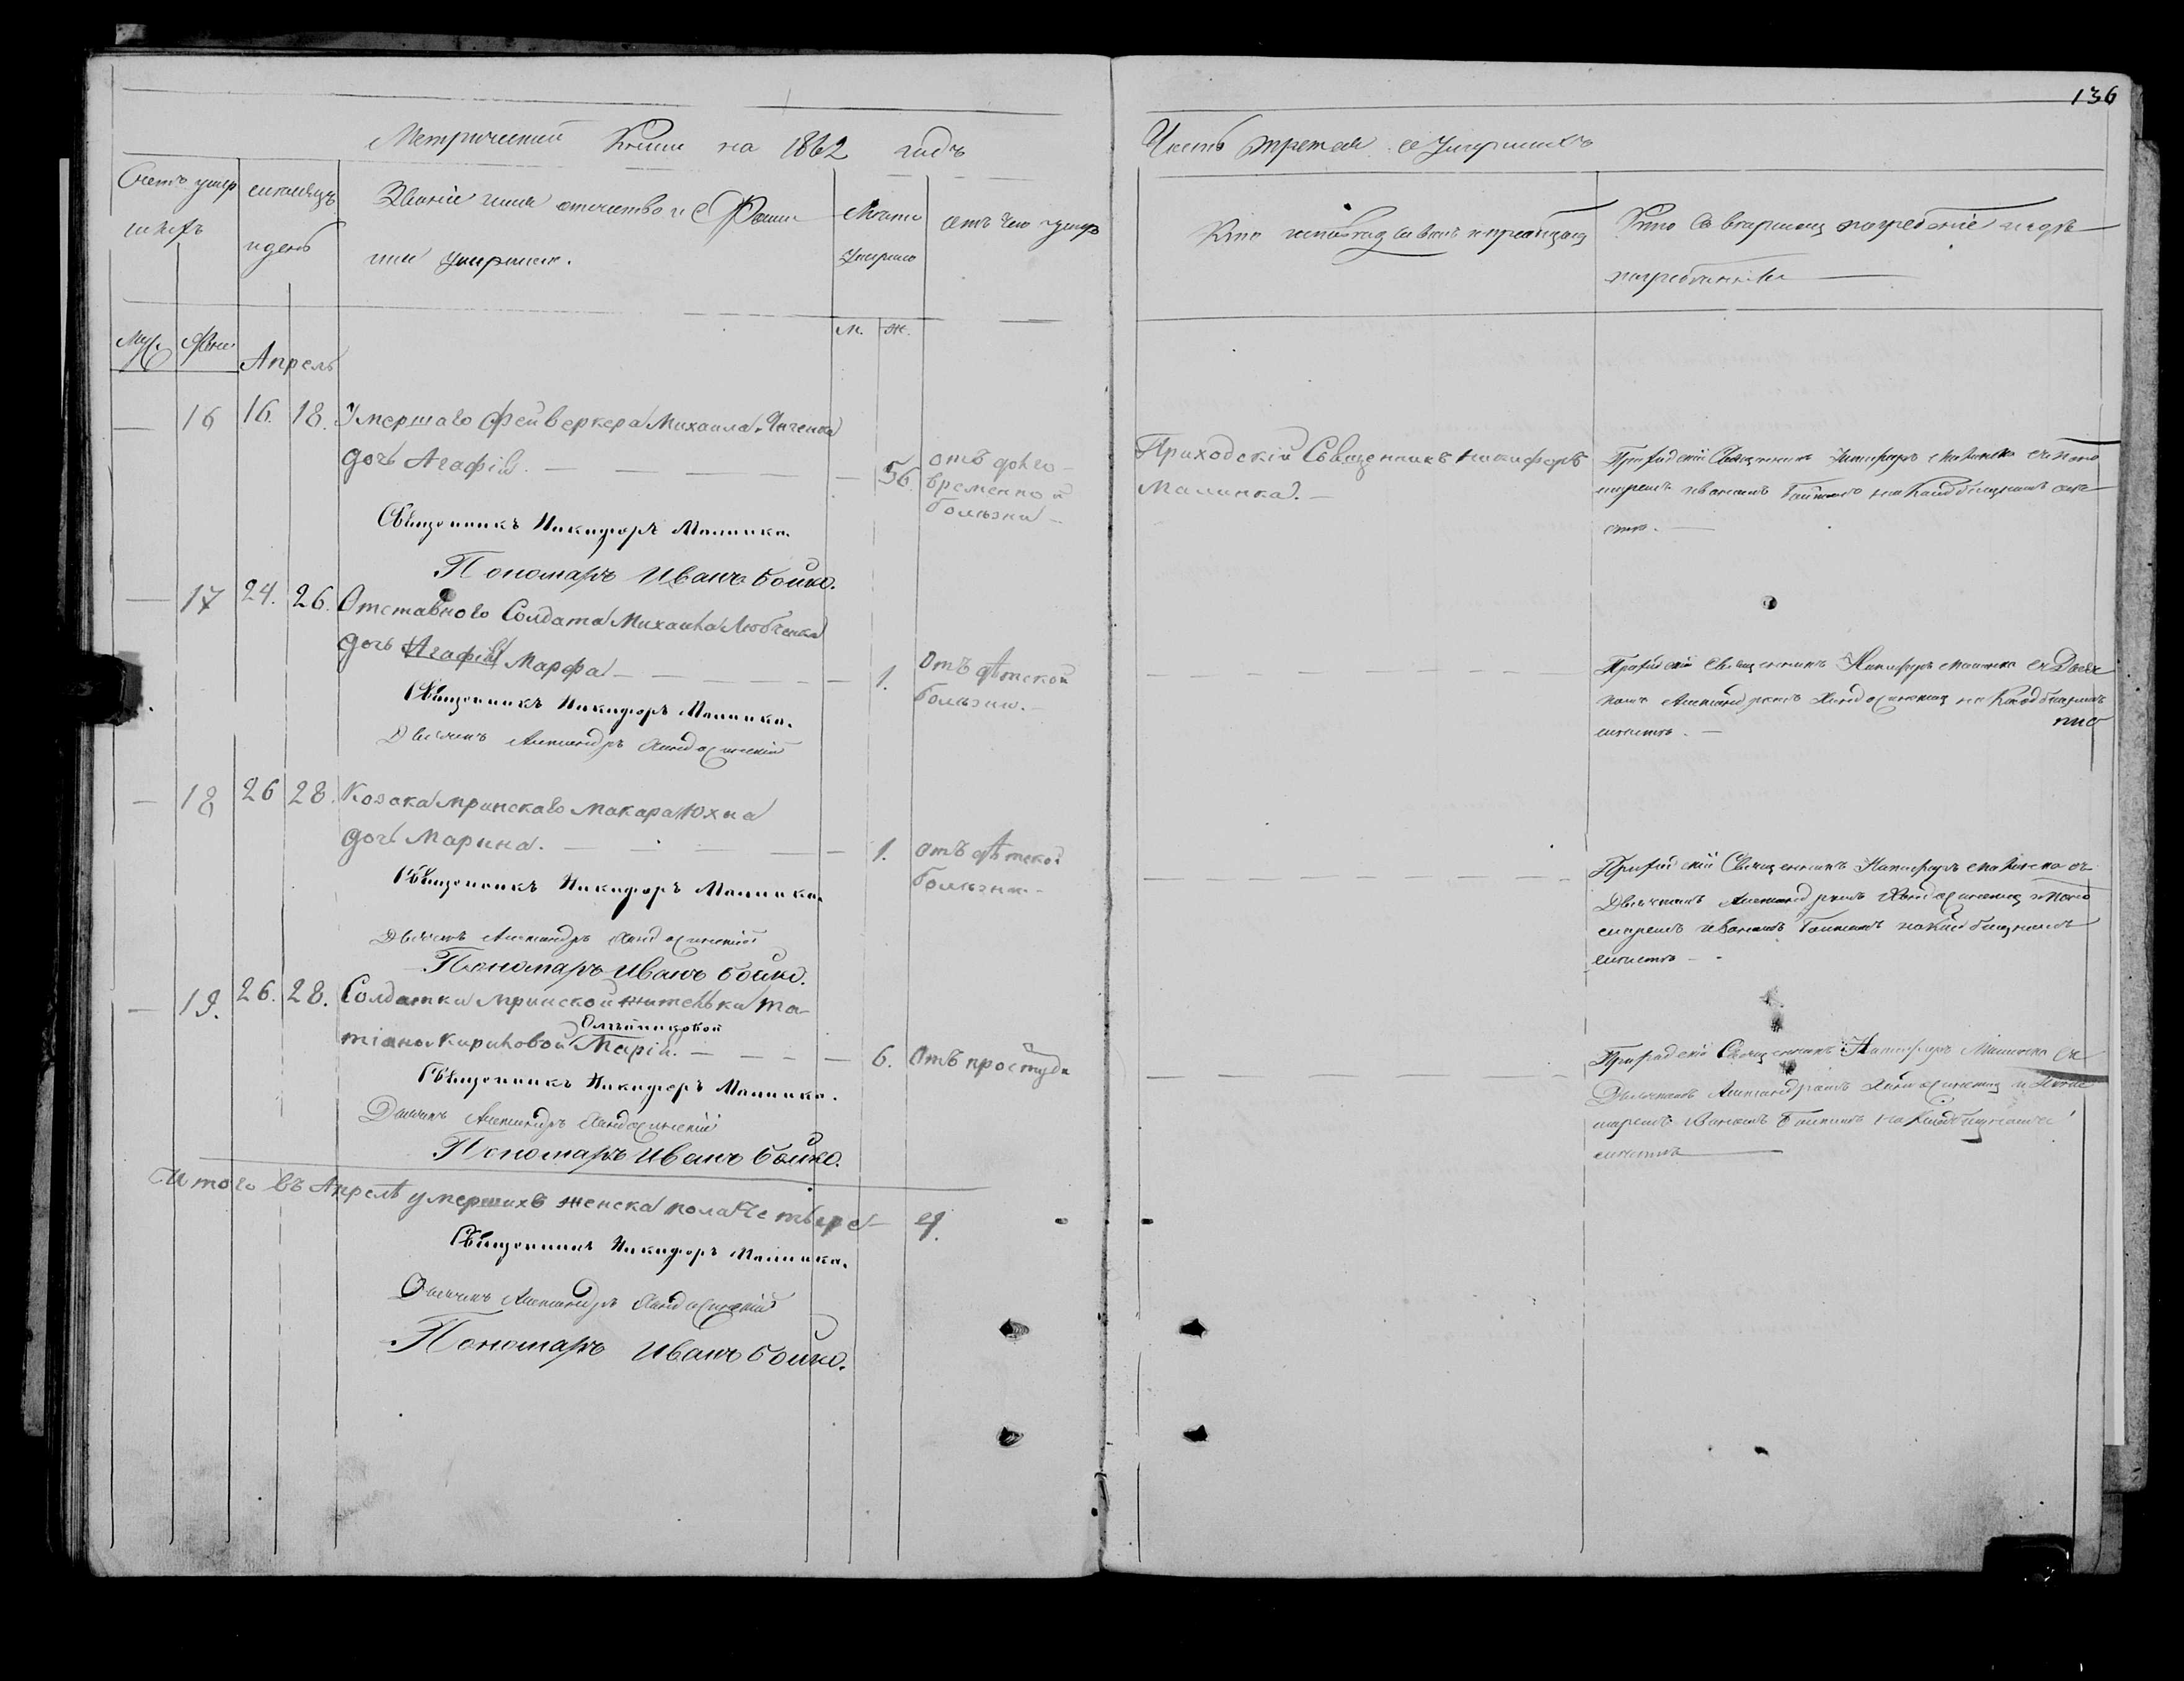 136
Метрической Книги на 1862 годъ
Часть третая о Умершихъ
Счетъ умер
шихъ
Муж. Жен.
мѣсяцъ
и день
Званіе имя отечество и Фами
лія умершихъ.
Лѣта
умершаго
м. ж.
отъ чего умеръ
Кто исповѣдывалъ и пріобщалъ
Кто совершалъ погребеніе и гдѣ
погребены
Апрель
— 16 16. 18. Умершаго Фейверкера Михаила
дочь Агафія. — — — — 56. отъ долго-
временной
болѣзни —
Приходскій Священникъ Никифоръ
Малинка. —
Приходскій Священникъ Никифоръ Малинка съ поно
маремъ Иваномъ Бойкомъ на Кладбищномъ
Священникъ Никифоръ Малинка.
Пономарь Иванъ Бойко.
— 17 24. 26. Отставного Солдата Михаила Любченка
дочь Агафія Марфа — — — — 1. Отъ дѣтской
болѣзни. —
Приходскій Священникъ Никифоръ Малинка съ Дьяч
комъ Александромъ на Кладбищномъ
Священникъ Никифоръ Малинка.
Дьячекъ Александръ
— 18 26 28. Козака Мринскаго Макара Юхна
дочь Марина. — — — — 1. отъ дѣтской
болѣзни. —
Приходскій Священникъ Никифоръ Малинка съ
Дьячкомъ Александромъ и поно
маремъ Иваномъ Бойкомъ на Кладбищномъ
Священникъ Никифоръ Малинка.
Дьячекъ Александръ
Пономарь Иванъ Бойко.
— 19. 26. 28. Солдатки Мринской жительки Та-
Олейниковой
тіаны Кириловой Марія. — — — 6. Отъ простуды
Приходскій Священникъ Никифоръ Малинка съ
Дьячкомъ Александромъ и Поно
маремъ Иваномъ Бойкомъ на Кладбищномъ
Священникъ Никифоръ Малинка.
Дьячекъ Александръ
Пономарь Иванъ Бойко.
Итого въ Апрелѣ умершихъ женска пола Четверо — 4.
Священникъ Никифоръ Малинка.
Дьячекъ Александръ
Пономарь Иванъ Бойко.